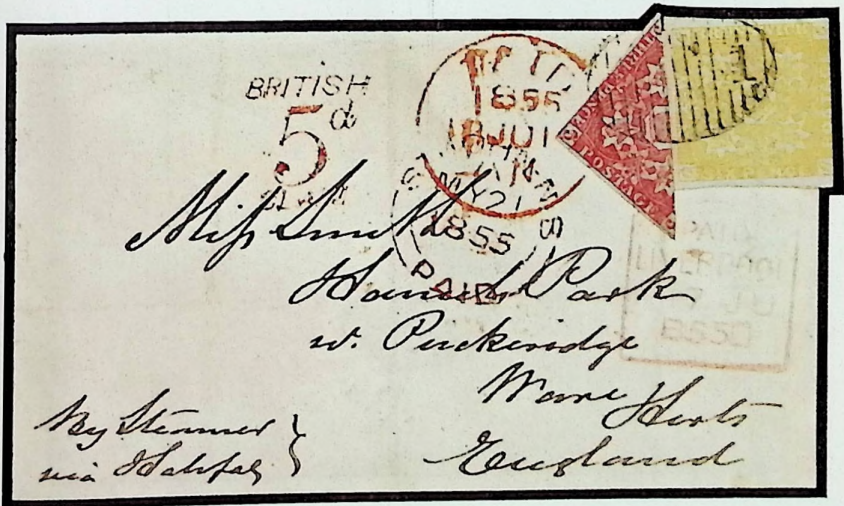 BRITISH
5d
1855
18 JU 1
ST JOHN'S
MY 21
1855
PAID
POSTAGE
PAID
LIVERPOOL
7 JU
1855
Miss Smith
Park
nr. Puckeridge
Ware Herts
England
By Steamer
via Halifax